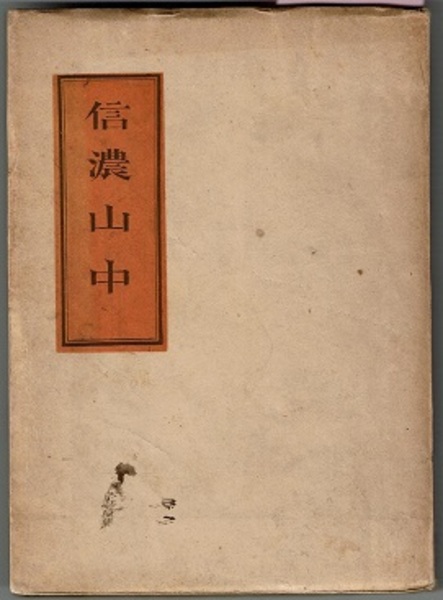 信濃山中